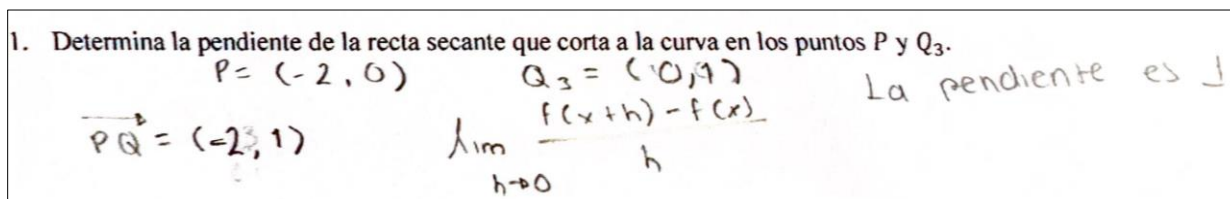 1. Determina la pendiente de la recta secante que corta a la curva en los puntos P y Q₃.
P = (-2, 0)
Q₃ = (0,1)
La pendiente es 1
PQ = (-2, 1)
lim h→0 f(x+h) - f(x) / h